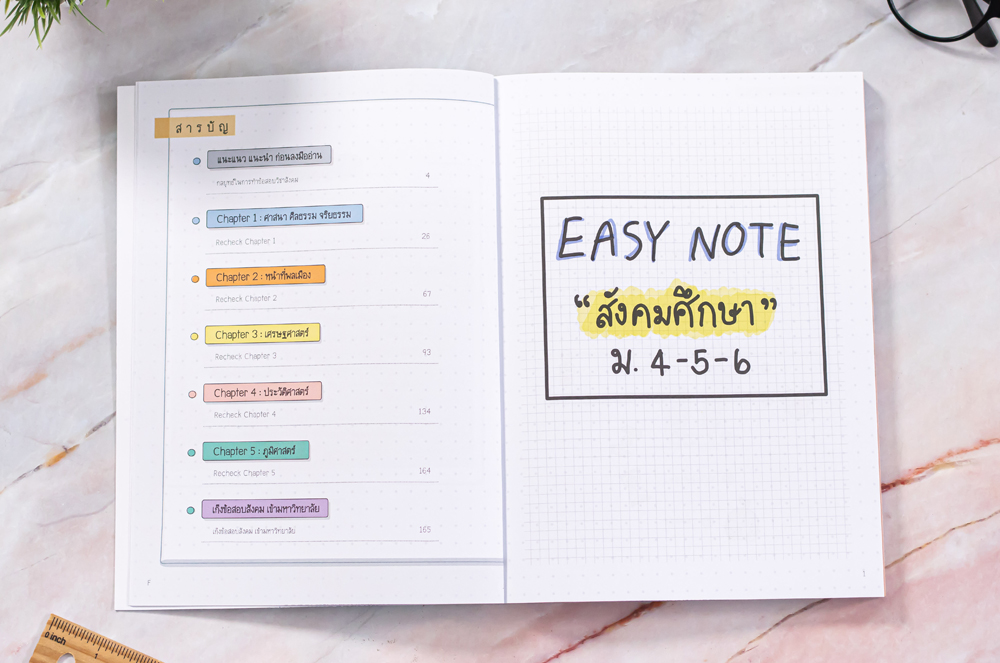 สารบัญ
แนะแนว แนะนำ ก่อนลงมืออ่าน
กลยุทธ์ในการทำข้อสอบวิชาสังคม 4
Chapter 1 : ศาสนา ศีลธรรม จริยธรรม
Recheck Chapter 1 26
Chapter 2 : หน้าที่พลเมือง
Recheck Chapter 2 67
Chapter 3 : เศรษฐศาสตร์
Recheck Chapter 3 93
Chapter 4 : ประวัติศาสตร์
Recheck Chapter 4 134
Chapter 5 : ภูมิศาสตร์
Recheck Chapter 5 164
เก็งข้อสอบสังคม เข้ามหาวิทยาลัย
เก็งข้อสอบสังคม เข้ามหาวิทยาลัย 165
EASY NOTE
“สังคมศึกษา”
ม. 4-5-6
1
0 inch 1